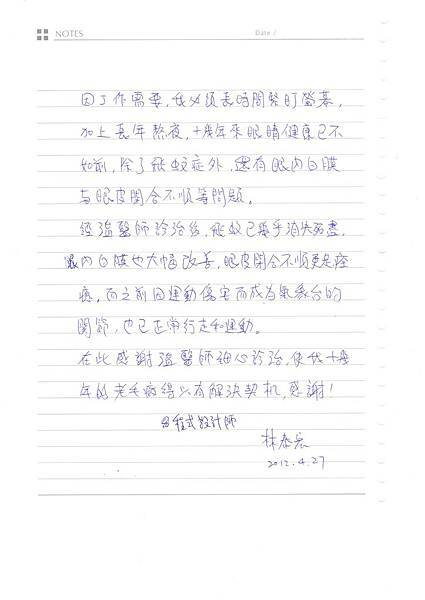 NOTES
Date /
因工作需要，我必須長時間緊盯螢幕，
加上長年熬夜，十幾年來眼睛健康已不
如前，除了飛蚊症外，還有眼內白膜
与眼皮閉合不順等問題。
經溫醫師診治後，飛蚊已幾乎消失殆盡，
眼內白膜也大幅改善，眼皮閉合不順更是痊
癒，而之前因運動傷害而成為氣象台的
關節，也已正常行走和運動。
在此感謝溫醫師細心診治，使我十幾
年的老毛病得以有解決契機，感謝！
程式設計師
林泰宏
2012.4.27